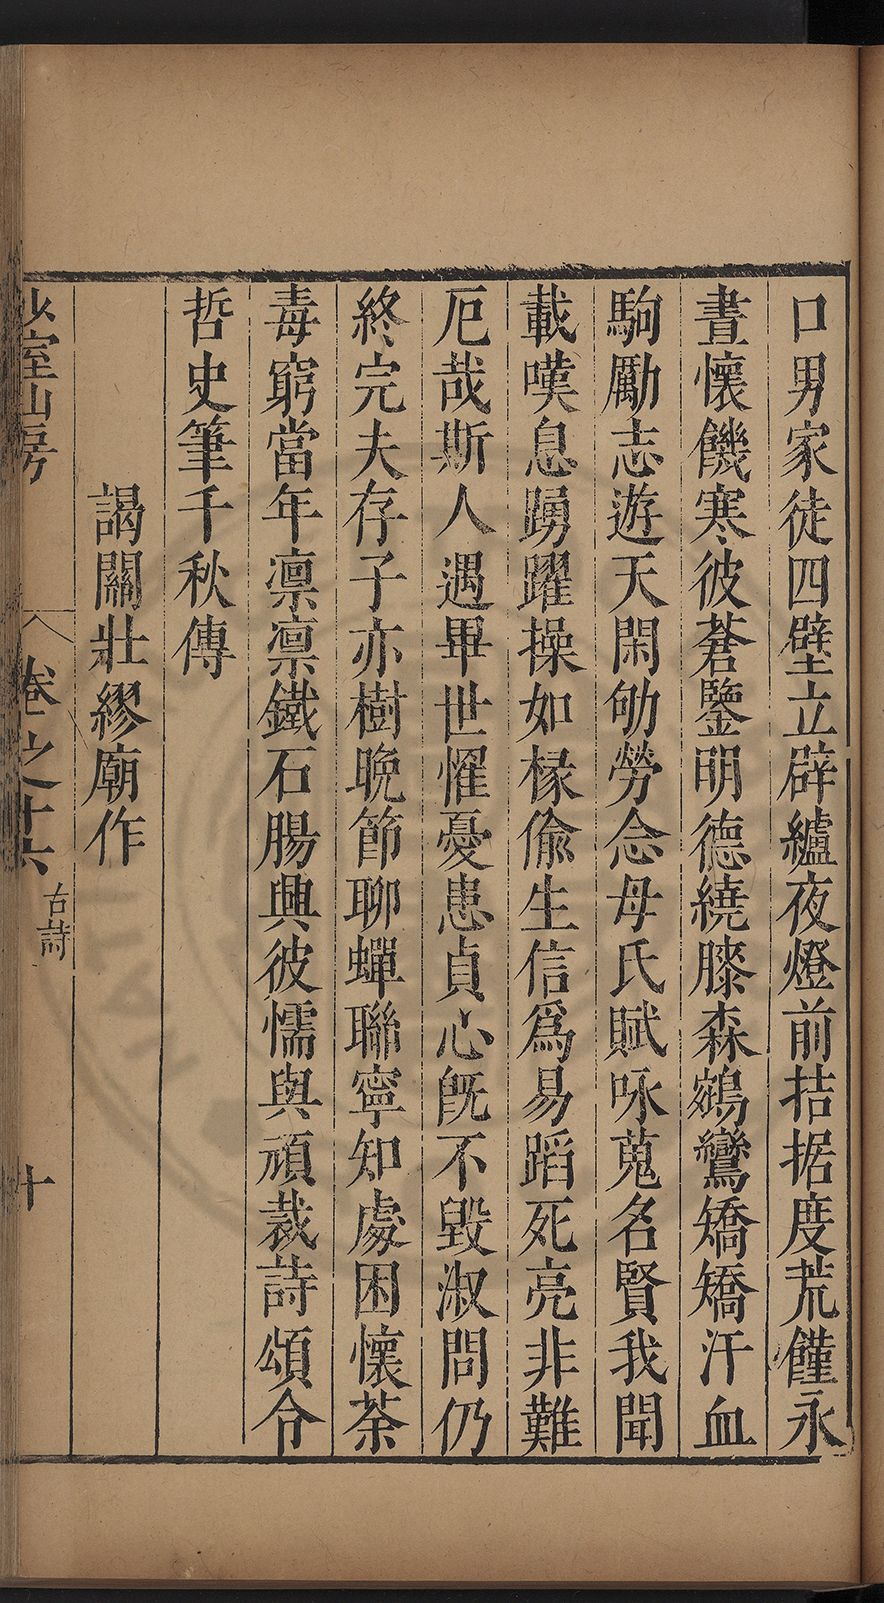 口男家徒四壁立辟纑夜燈前拮据度荒饉永
晝懷饑寒彼蒼鑒明德繞膝森鵷鸞矯矯汗血
駒勵志遊天閑劬勞念母氏賦咏蒐名賢我聞
載嘆息踴躍操如椽偷生信爲易蹈死亮非難
厄哉斯人遇畢世懼憂患貞心旣不毀淑問仍
終完夫存子亦樹晚節聊蟬聯寧知處困懷荼
毒窮當年凛凛鐵石腸興彼懦與頑裁詩頌令
哲史筆千秋傳
謁關壯繆廟作
少室山房
卷之十六
古詩
十